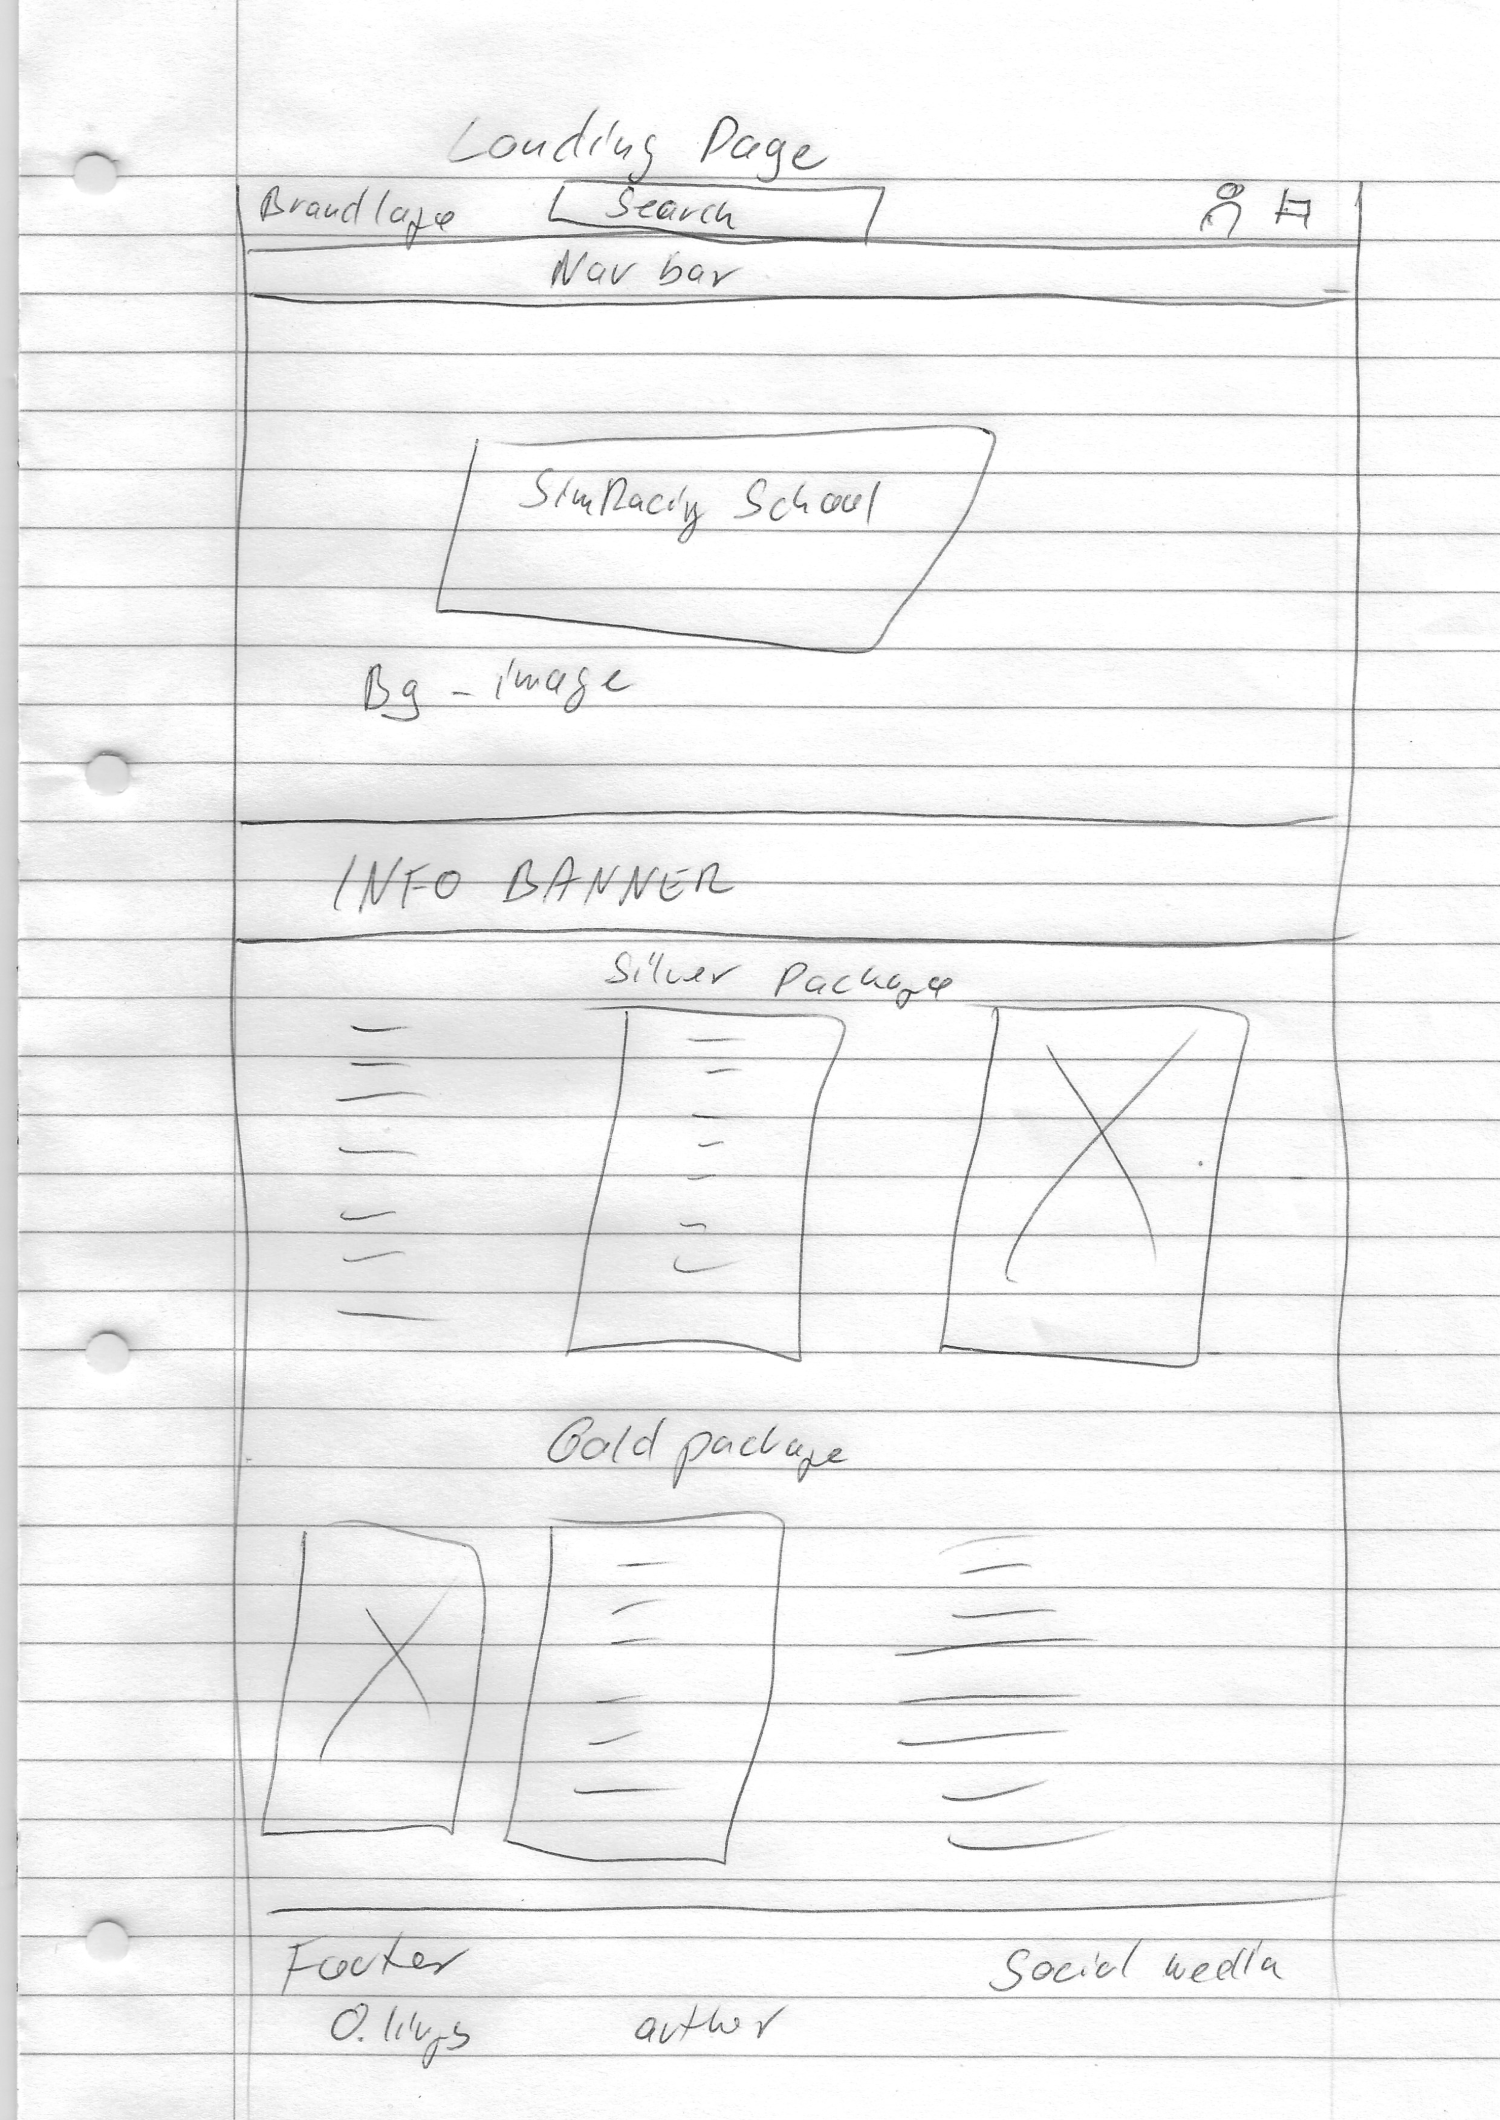 Landing Page
Brandlogo Search
Nav bar
SimRacing School
Bg - image
INFO BANNER
Silver Package
Gold package
Footer Social media
author